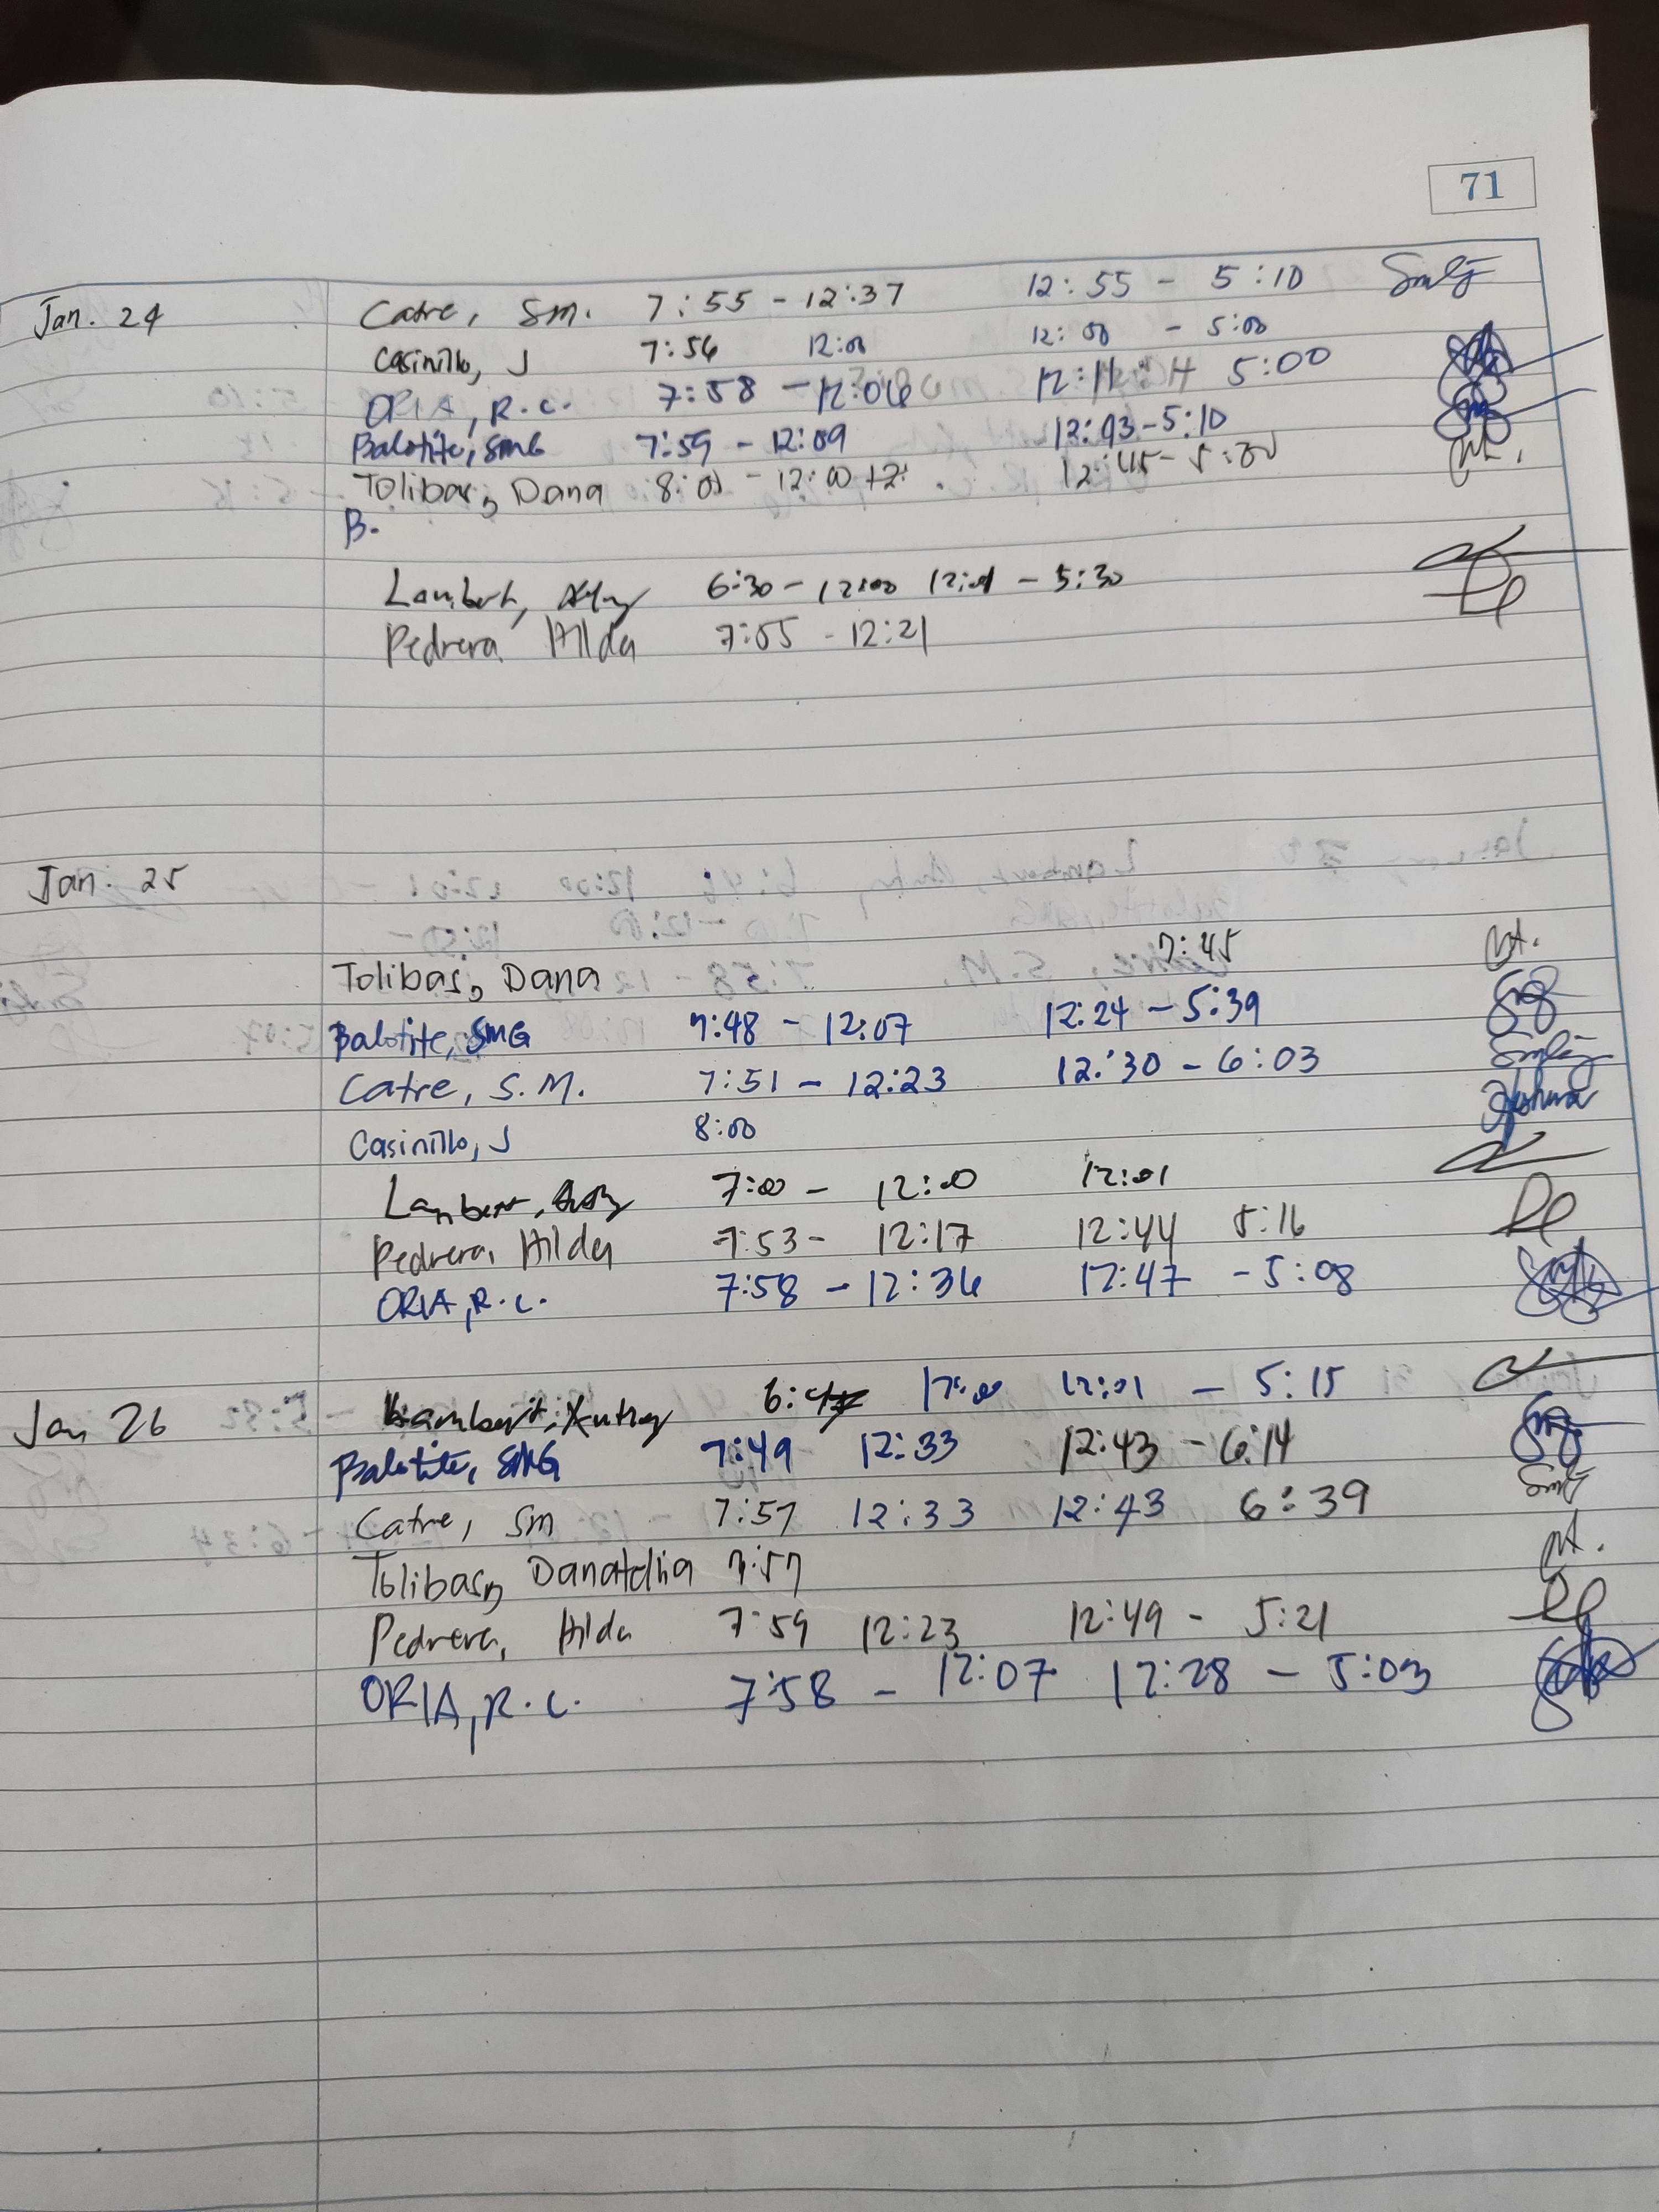 71
Jan. 24 Catre, Sm. 7:55 - 12:37 12:55 - 5:10
Casinillo, J 7:56 12:00 12:00 - 5:00
ORIA, R.C. 7:58 - 12:06 12:11 5:00
Balotite, SMG 7:59 - 12:09 12:43 - 5:10
Tolibas, Dana 8:01 - 12:00 12:45 - 5:00
B.
Lambert, 6:30 - 12:00 12:01 - 5:30
Pedrera Hilda 7:55 - 12:21
Jan. 25
Tolibas, Dana 7:45
Balotite, SMG 7:48 - 12:07 12:24 - 5:39
Catre, S.M. 7:51 - 12:23 12:30 - 6:03
Casinillo, J 8:00
Lambert, 7:00 - 12:00 12:01
Pedrera, Hilda 7:53 - 12:17 12:44 5:16
ORIA, R.C. 7:58 - 12:36 12:47 - 5:08
Jan 26 Lambert, 12:00 12:01 - 5:15
Balotite, SMG 7:49 12:33 12:43 - 6:14
Catre, Sm 7:57 12:33 12:43 6:39
Tolibas, 7:57
Pedrera, Hilda 7:59 12:23 12:49 - 5:21
ORIA, R.C. 7:58 - 12:07 12:28 - 5:03